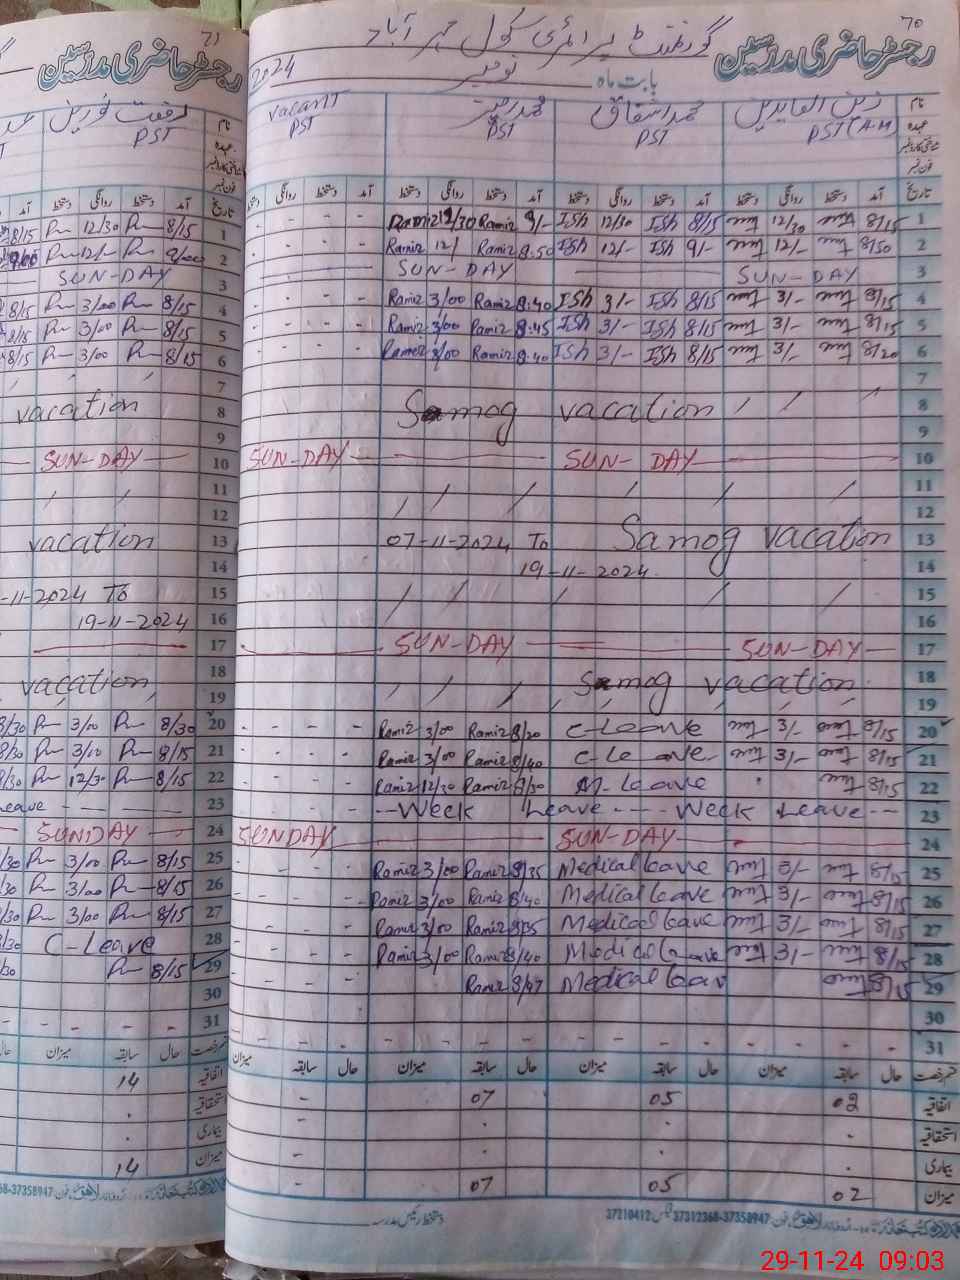 70
گورنمنٹ پرائمری سکول مہر آباد
رجسٹر حاضری مدرسین
بابت ماہ نومبر 2024
نام زین العابدین محمد اشفاق محمد رمیز vacanT
عہدہ PST (A-H) PST PST PST
فون نمبر
تاریخ آمد دستخط روانگی دستخط آمد دستخط روانگی دستخط آمد دستخط روانگی دستخط آمد دستخط روانگی دستخط
1 8/15 12/30 8/15 ISh 12/30 ISh 9/- Ramiz 12/30 Ramiz - - - -
2 8/50 12/- 9/- ISh 12/- ISh 8:50 Ramiz 12/ Ramiz - - - -
3 SUN-DAY SUN-DAY
4 8/15 3/- 8/15 ISh 3/- ISh 8:40 Ramiz 3/00 Ramiz - - - -
5 8/15 3/- 8/15 ISh 3/- ISh 8:45 Ramiz 3/00 Ramiz - - - -
6 8/20 3/- 8/15 ISh 3/- ISh 8:40 Ramiz 3/00 Ramiz - - - -
7
8 Samog vacation
9
10 SUN-DAY SUN-DAY
11
12
13 07-11-2024 To Samog vacation
14 19-11-2024
15
16
17 SUN-DAY SUN-DAY
18 Samog vacation
19
20 8/15 3/- C-Leave 8/20 Ramiz 3/00 Ramiz - - - -
21 8/15 3/- C-Leave 8/40 Ramiz 3/00 Ramiz - - - -
22 8/15 M-Leave 8/30 Ramiz 12/30 Ramiz - - - -
23 --Week Leave---- Week Leave--
24 SUNDAY SUN-DAY
25 8/15 3/- Medical leave 8/35 Ramiz 3/00 Ramiz - - - -
26 8/15 3/- Medical leave 8/40 Ramiz 3/00 Ramiz - - - -
27 8/15 3/- Medical leave 8/35 Ramiz 3/00 Ramiz - - - -
28 8/15 3/- Medical Leave 8/40 Ramiz 3/00 Ramiz - - - -
29 8/15 Medical leav 8/47 Ramiz
30
31
قسم رخصت حال سابقہ میزان حال سابقہ میزان حال سابقہ میزان حال سابقہ میزان
اتفاقیہ 02 05 07 -
استحقاقیہ
بیماری
میزان 02 05 07 -
دستخط رئیس مدرسہ
فون 37312368-37358947 فیکس 37210412
71
رجسٹر حاضری مدرسین
نام رفعت نورین
عہدہ PST
فون نمبر
تاریخ آمد دستخط روانگی دستخط آمد
1 8/15 12/30 8/15
2 9/00 12/- 9/00
3 SUN-DAY
4 8/15 3/00 8/15
5 8/15 3/00 8/15
6 8/15 3/00 8/15
7
8 vacation
9
10 SUN-DAY
11
12
13 vacation
14
15 -11-2024 To
16 19-11-2024
17
18 vacation
19
20 8/30 3/00 8/30
21 8/15 3/00 8/30
22 8/15 12/30 8/30
23 Leave
24 SUNDAY
25 8/15 3/00 /30
26 8/15 3/00 /30
27 8/15 3/00 /30
28 C-Leave /30
29 8/15 /30
30
31
قسم رخصت حال سابقہ میزان حال
اتفاقیہ 14
استحقاقیہ
بیماری
میزان 14
68-37358947
29-11-24 09:03